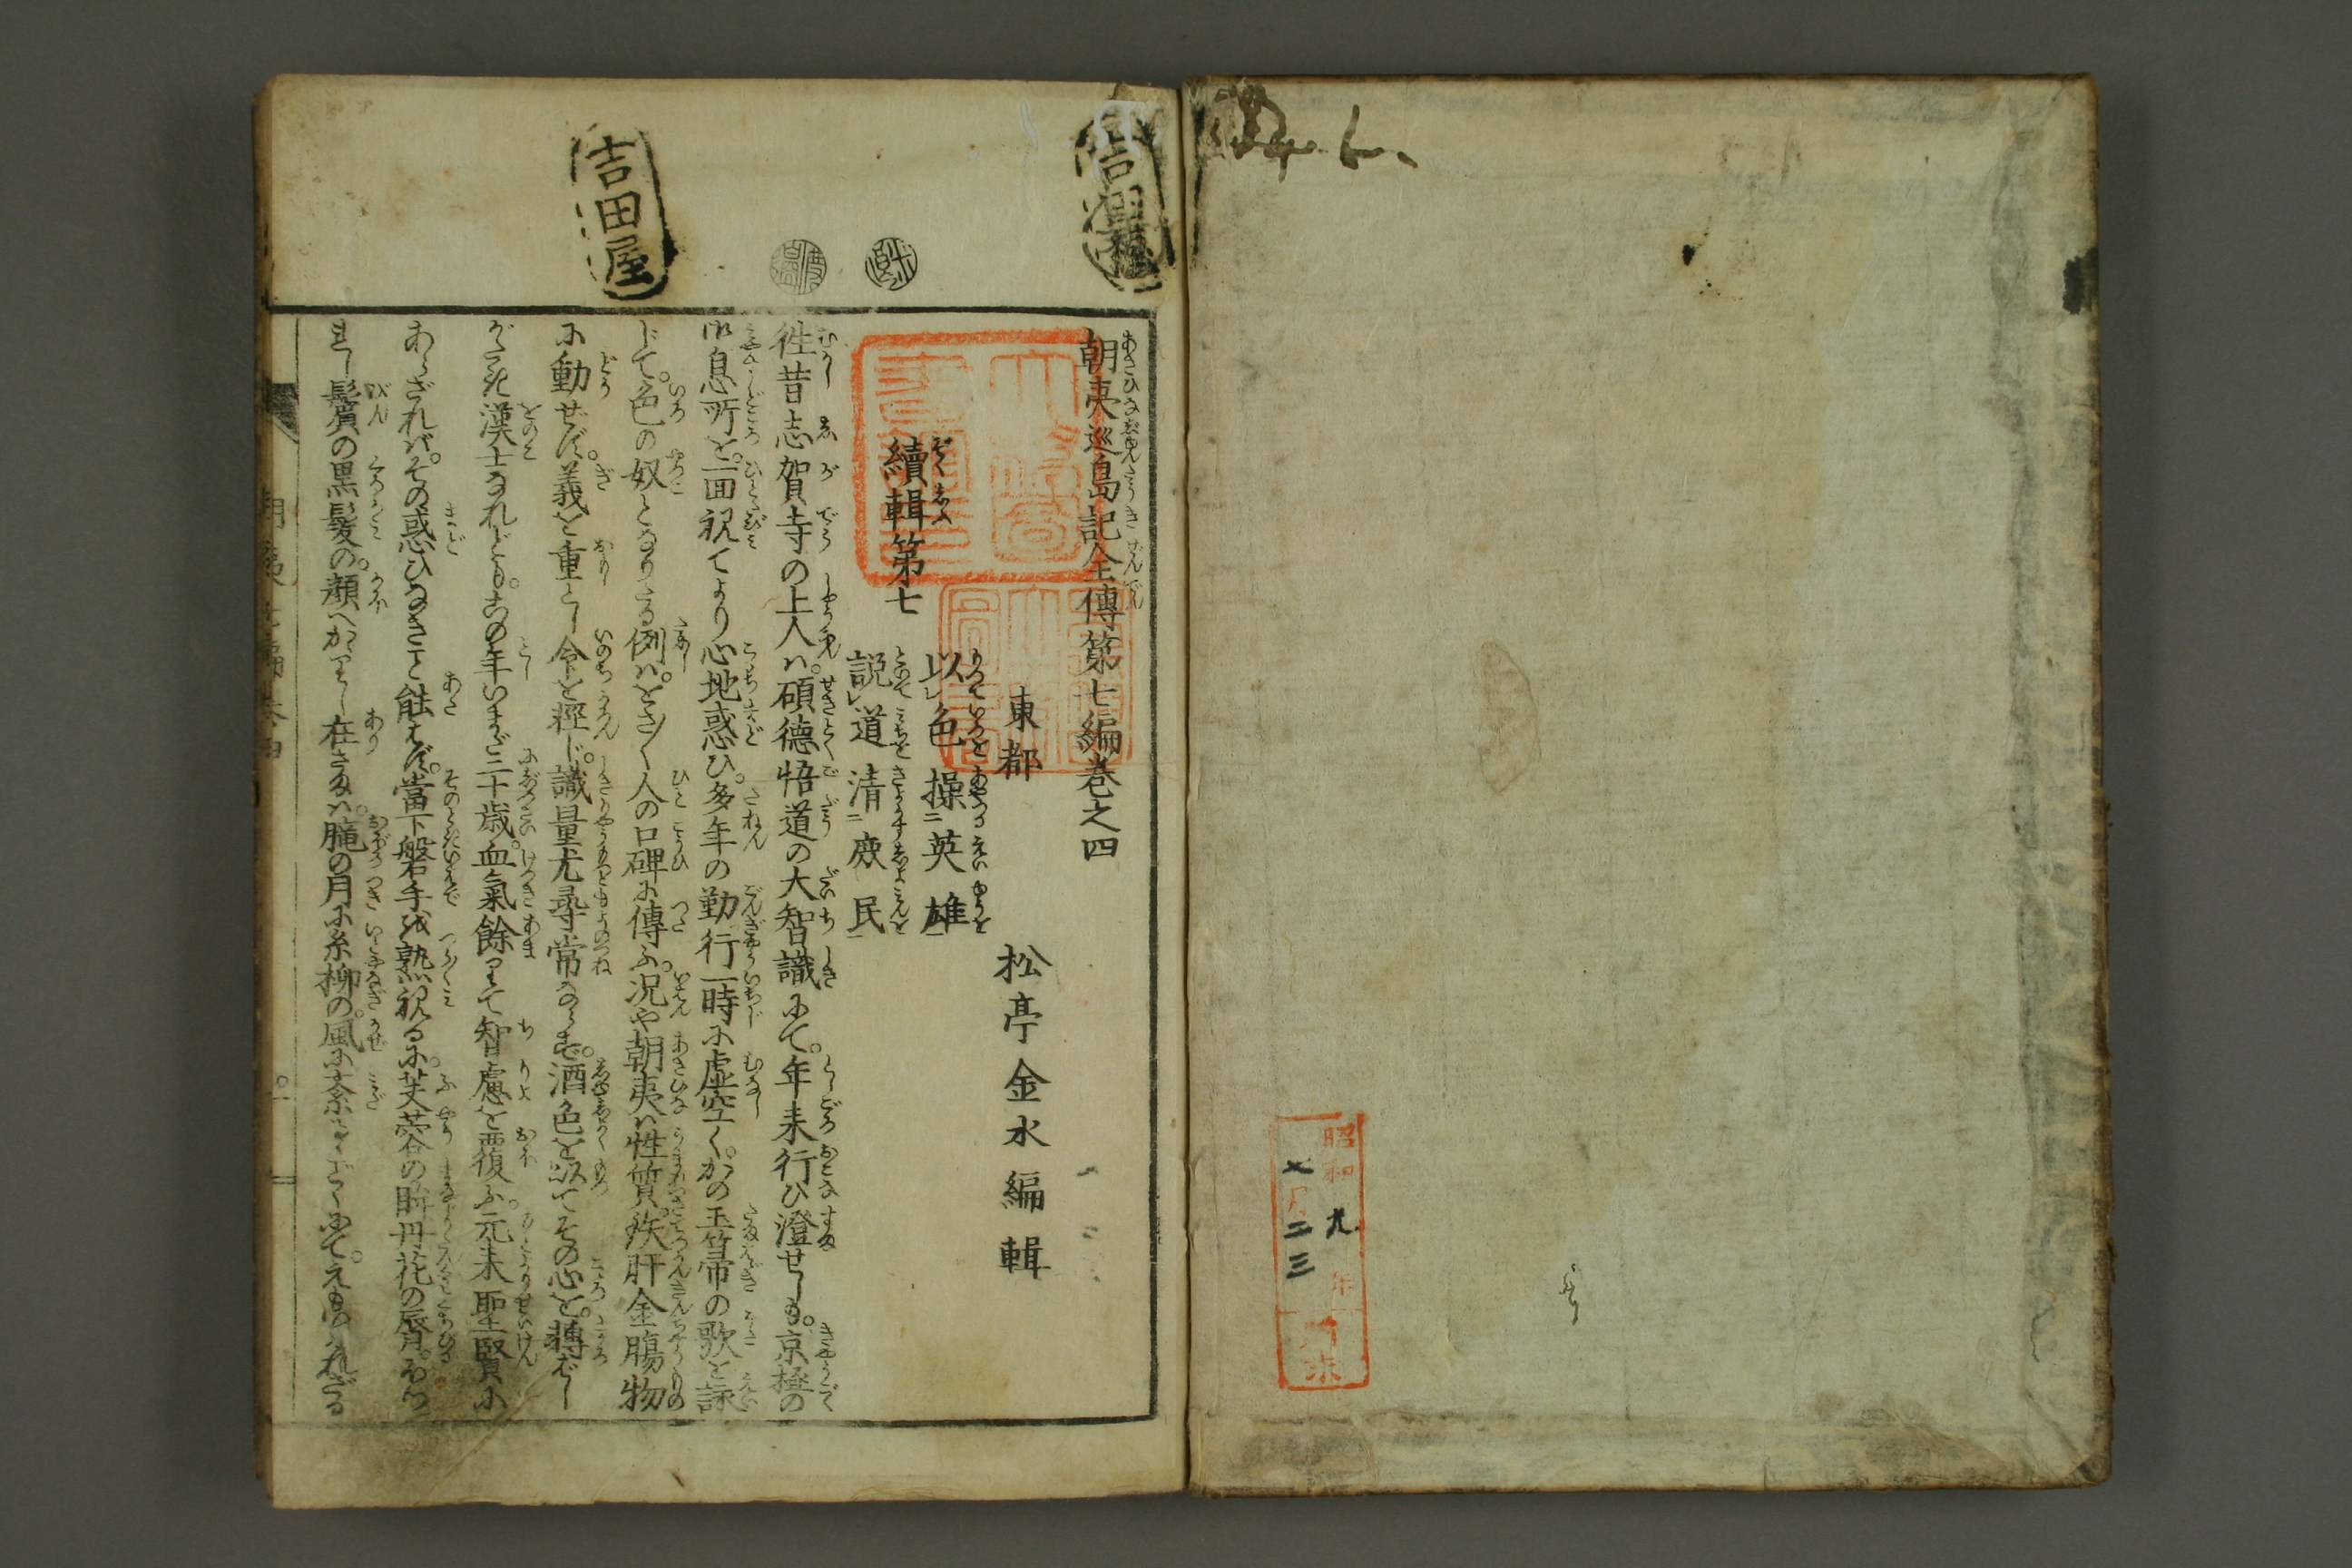 昭和九年
七月二三
吉田屋
吉田屋
朝夷巡島記全傳第七編巻之四
東都 松亭金水編輯
續輯第七
以色操英雄
説道清廃民
徃昔志賀寺の上人ハ。碩徳悟道の大智識にて。年来行ひ澄せしも。京極の
御息所を。一回視てより心地惑ひ。多年の勤行一時に虚空く。かの玉箒の歌を詠
じて。色の奴となりたる例ハ。をさ〳〵人の口碑に傳ふ。况や朝夷ハ性質鉄肝金腸物
に動ぜず。義を重とし命を軽じ。識量尤尋常ならず。酒色を以てその心を。轉ばし
がたき漢士なれども。其年いまだ二十歳。血氣餘りて智慮を覆ふ。元来聖賢に
あらざれバ。その惑ひなきこと能はず。當下磐手を熟視るに。芙蓉の眸丹花の唇。
鬢の黒髪の。顔へかゝりし在さまハ。朧の月に糸柳の。風に紊るゝごとくにて。えもいはれざる